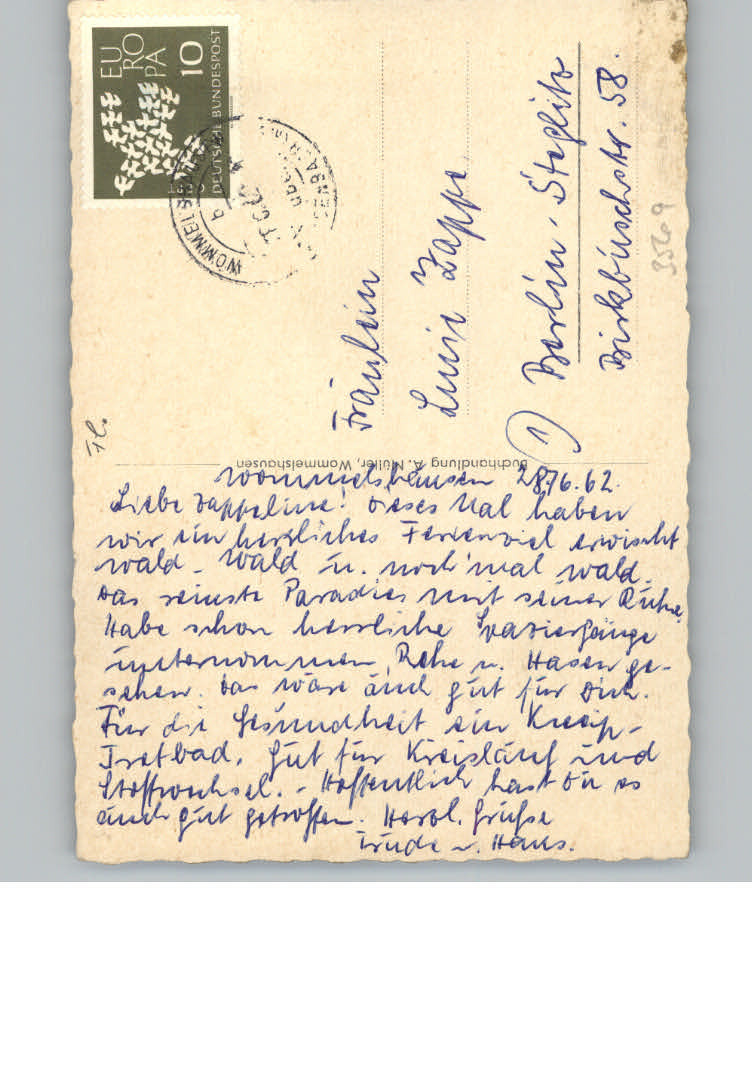 EUROPA
10
DEUTSCHE BUNDESPOST
WOMMELSHAUSEN
Fräulein
Lucie Zappe
(1) Berlin-Steglitz
Birkbuschstr. 58.
3569
Buchhandlung A. Müller, Wommelshausen
Wommelshausen 28.6.62.
Liebe Zappeline! Dieses Mal haben
wir ein herrliches Ferienziel erwischt
Wald - Wald u. noch'mal Wald.
Das reinste Paradies mit seiner Ruhe.
Habe schon herrliche Spaziergänge
unternommen, Rehe u. Hasen ge-
sehen. Das wäre auch gut für Dich.
Für die Gesundheit ein Kneip-
Tretbad, gut für Kreislauf und
Stoffwechsel. - Hoffentlich hast Du es
auch gut getroffen. Herzl. Grüße
Trude u. Hans.